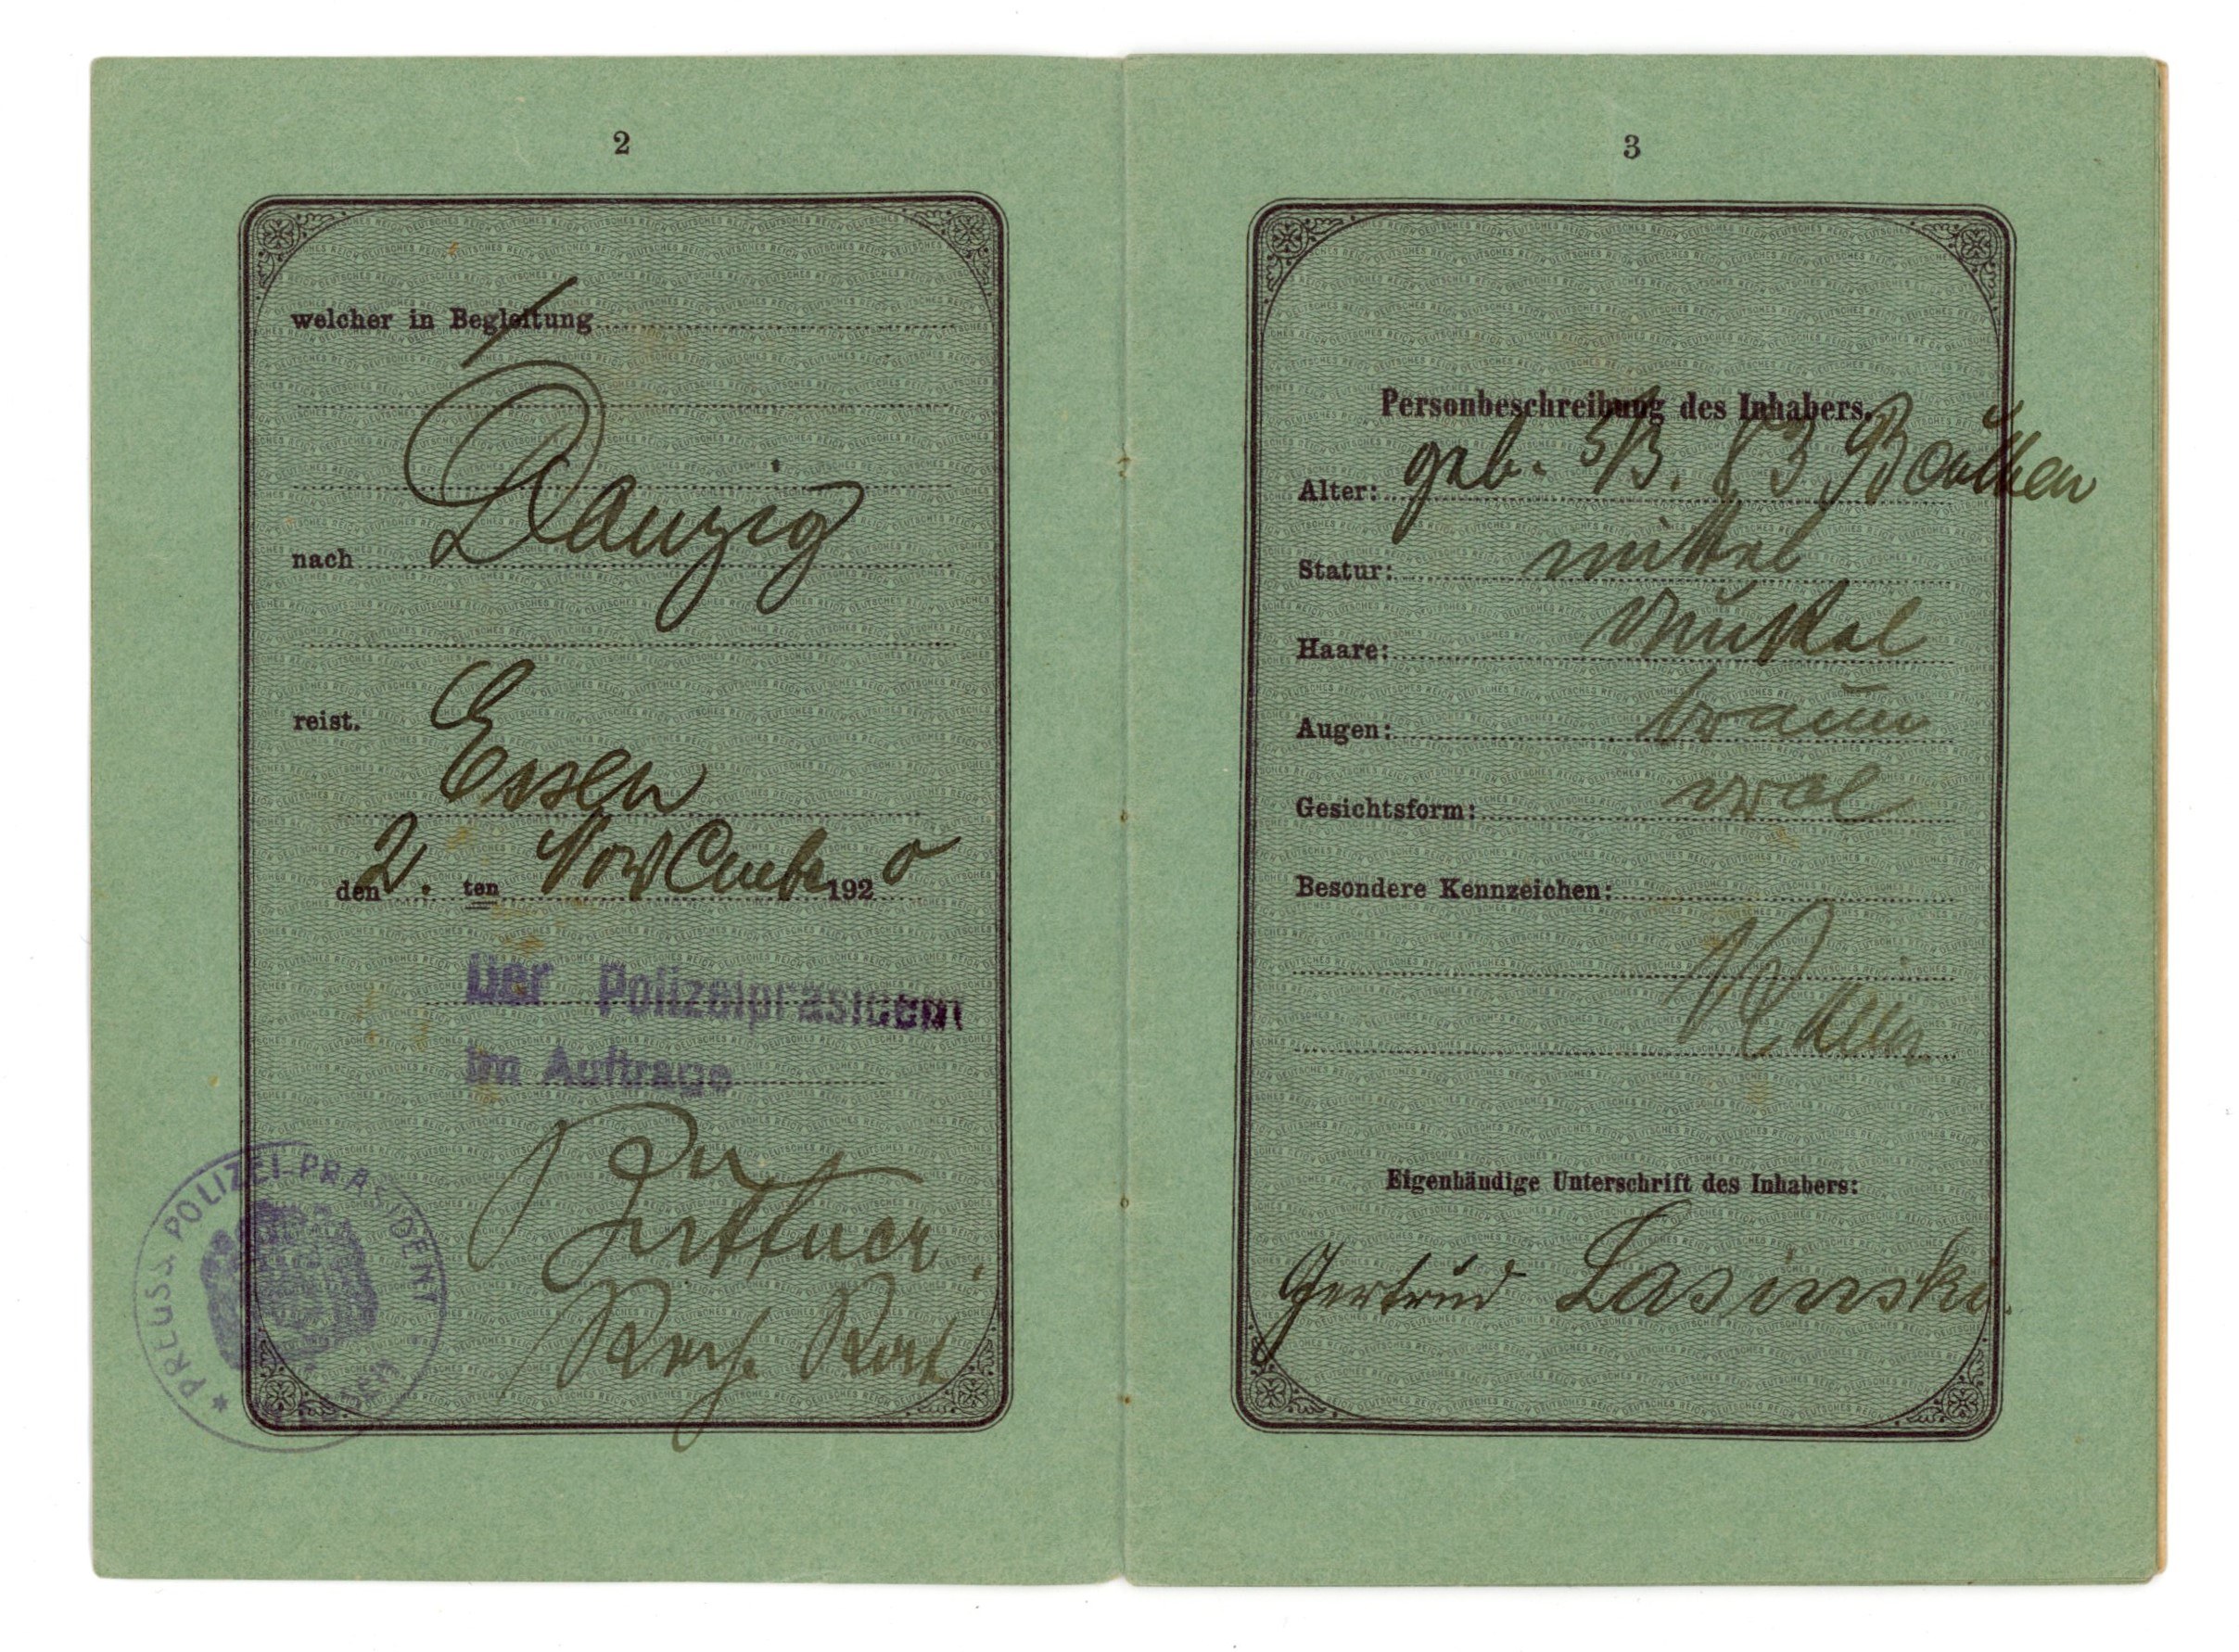 2
welcher in Begleitung
Danzig
nach
reist.
Essen
den 2. ten November 1920
Der Polizeipräsident
Im Auftrage
Reg. Rat
PREUSS. POLIZEI-PRÄSIDENT
3
Personbeschreibung des Inhabers.
Alter: geb. 5/3. 83 Beuthen
Statur: mittel
Haare: dunkel
Augen: braun
Gesichtsform: oval
Besondere Kennzeichen:
Kein
Eigenhändige Unterschrift des Inhabers:
Gertrud Lasinski.